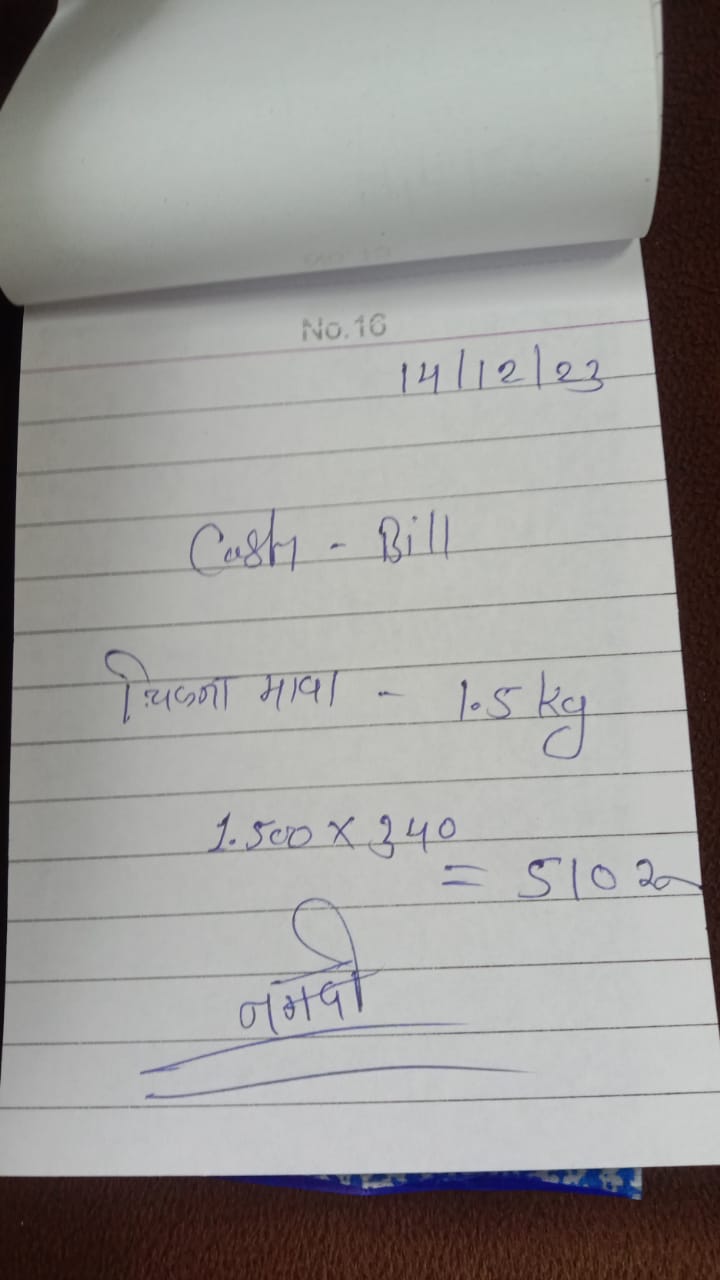 No.16
14/12/23
Cash - Bill
चिकना मावा - 1.5 kg
1.500 x 340
= 510 रु